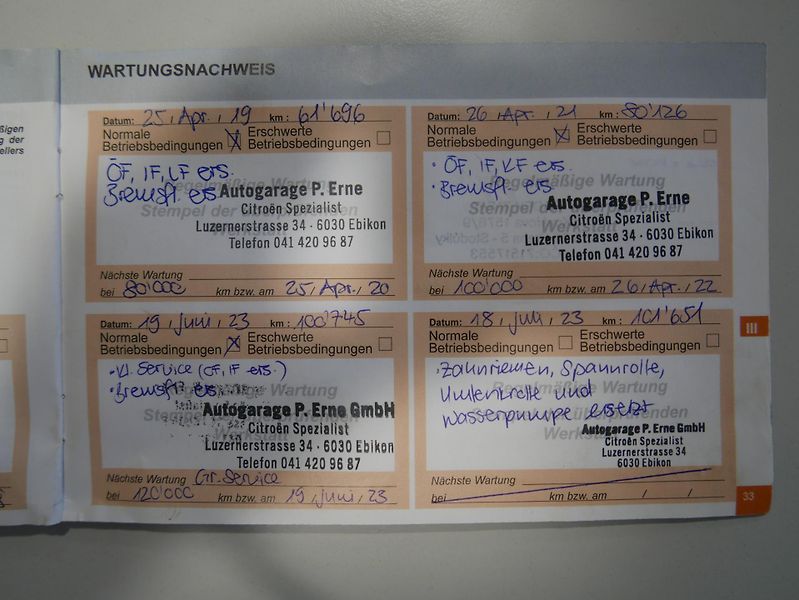 WARTUNGSNACHWEIS
ßigen
ng der
ellers
Datum: 25, Apr., 19 km: 61'696
Normale Betriebsbedingungen
Erschwerte Betriebsbedingungen
ÖF, IF, LF ers.
Bremsfl. ers
Regelmäßige Wartung
Stempel der
Autogarage P. Erne
Citroën Spezialist
Luzernerstrasse 34 - 6030 Ebikon
Telefon 041 420 96 87
Nächste Wartung
bei 80'000 km bzw. am 25, Apr., 20
Datum: 26, Apr., 21 km: 80'126
Normale Betriebsbedingungen
Erschwerte Betriebsbedingungen
· ÖF, IF, LF ers.
· Bremsfl. ers
Regelmäßige Wartung
Stempel der
Autogarage P. Erne
Citroën Spezialist
Luzernerstrasse 34 - 6030 Ebikon
Telefon 041 420 96 87
Nächste Wartung
bei 100'000 km bzw. am 26, Apr., 22
Datum: 19, Juni, 23 km: 100'745
Normale Betriebsbedingungen
Erschwerte Betriebsbedingungen
· Kl. Service (ÖF, IF ers.)
· Bremsfl. ers
Regelmäßige Wartung
Stempel
Autogarage P. Erne GmbH
Citroën Spezialist
Luzernerstrasse 34 - 6030 Ebikon
Telefon 041 420 96 87
Nächste Wartung Gr. Service
bei 120'000 km bzw. am 19, Juni, 23
Datum: 18, Juli, 23 km: 101'651
Normale Betriebsbedingungen
Erschwerte Betriebsbedingungen
· Zahnriemen, Spannrolle,
Umlenkrolle und
Wasserpumpe ersetzt
Regelmäßige Wartung
Autogarage P. Erne GmbH
Citroën Spezialist
Luzernerstrasse 34
6030 Ebikon
Nächste Wartung
bei km bzw. am / /
III
33